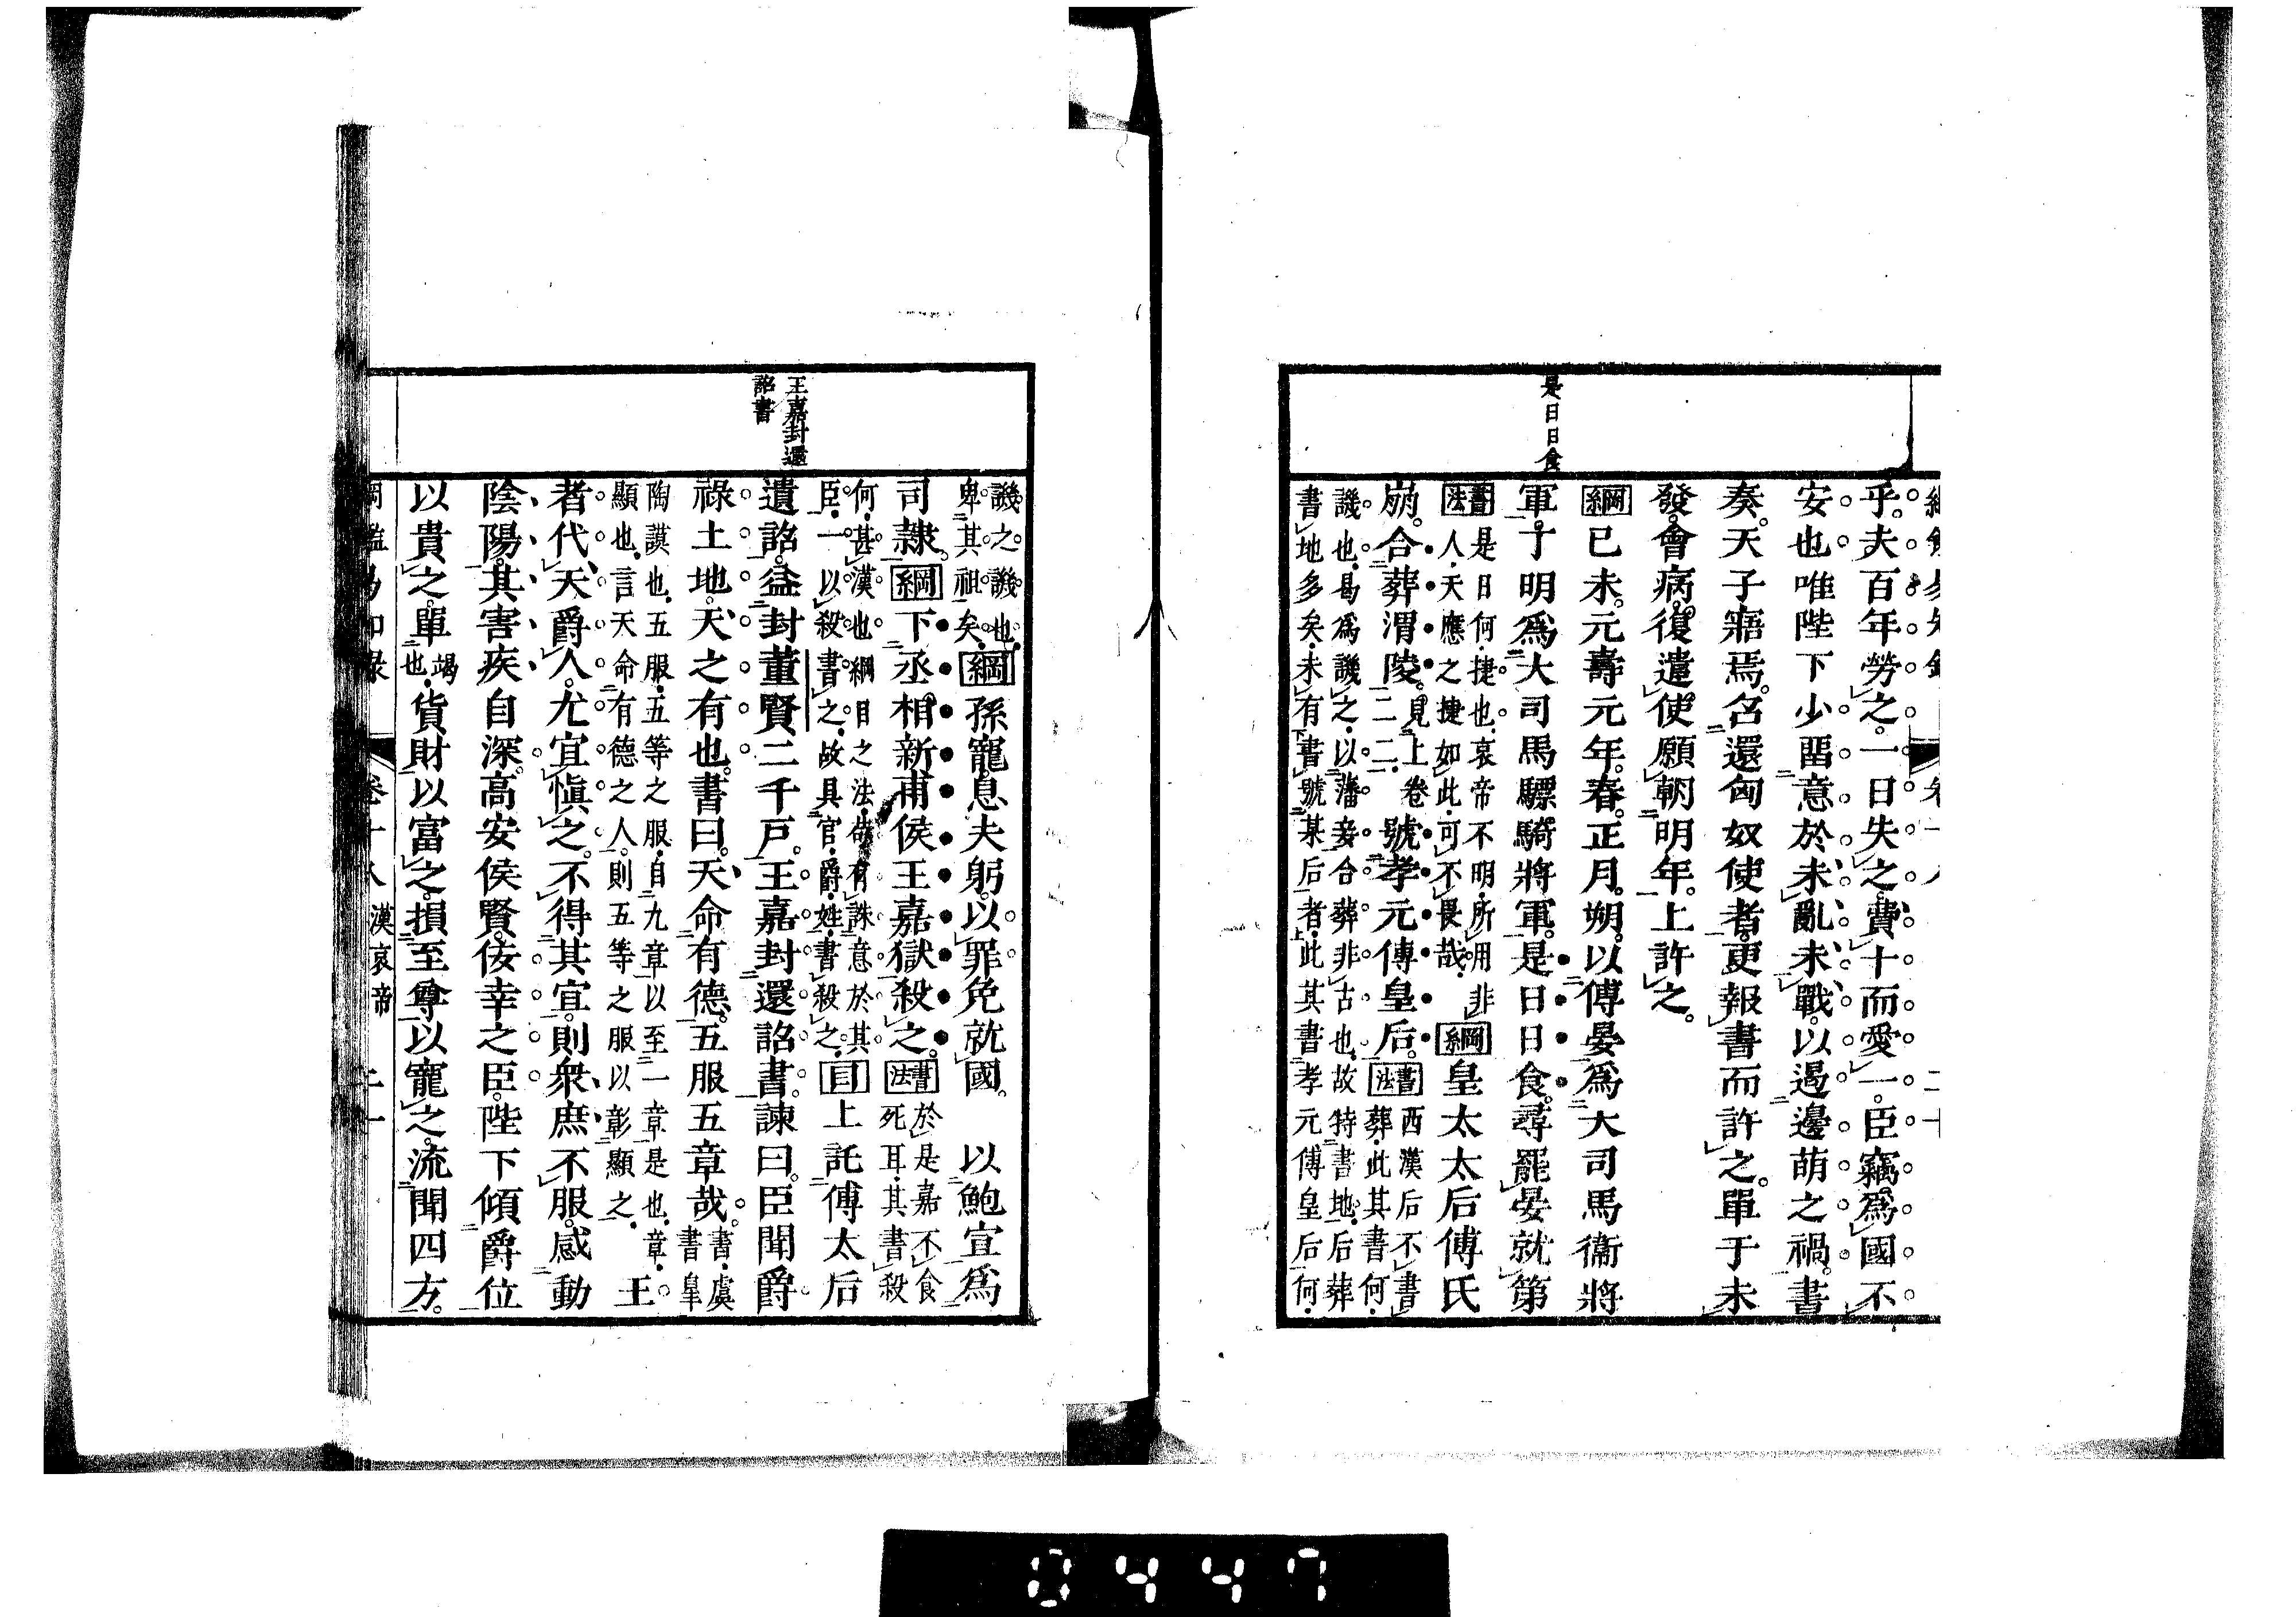 是日日食
乎夫百年勞之一日失之費十而愛一臣竊爲國不
安也唯陛下少畱意於未亂未戰以遏邊萌之禍書
奏天子寤焉召還匈奴使者更報書而許之單于未
發會病復遣使願朝明年上許之
綱已未元壽元年春正月朔以傅晏爲大司馬衞將
軍丁明爲大司馬驃騎將軍是日日食尋罷晏就第
書法是日何捷也哀帝不明所用非
人天應之捷如此可不畏哉
綱皇太太后傅氏
崩合葬渭陵見上卷二二號孝元傅皇后
書法西漢后不書
葬此其書何
譏也曷爲譏之以藩妾合葬非古也故特書地后葬
書地多矣未有書號某后者此其書孝元傅皇后何
王嘉封還
詔書
譏之譏也
卑其祖矣
綱孫寵息夫躬以罪免就國　以鮑宣爲
司隸綱下丞相新甫侯王嘉獄殺之
書法於是嘉不食
死耳其書殺
何甚漢也綱目之法苟有誅意於其
臣一以殺書之故具官爵姓書殺之
目上託傅太后
遺詔益封董賢二千戸王嘉封還詔書諫曰臣聞爵
祿土地天之有也書曰天命有德五服五章哉
書虞
書皐
陶謨也五服五等之服自九章以至一章是也章
顯也言天命有德之人則五等之服以彰顯之
王
者代天爵人尤宜愼之不得其宜則衆庶不服感動
陰陽其害疾自深高安侯賢佞幸之臣陛下傾爵位
以貴之單竭也貨財以富之損至尊以寵之流聞四方
漢哀帝
0447